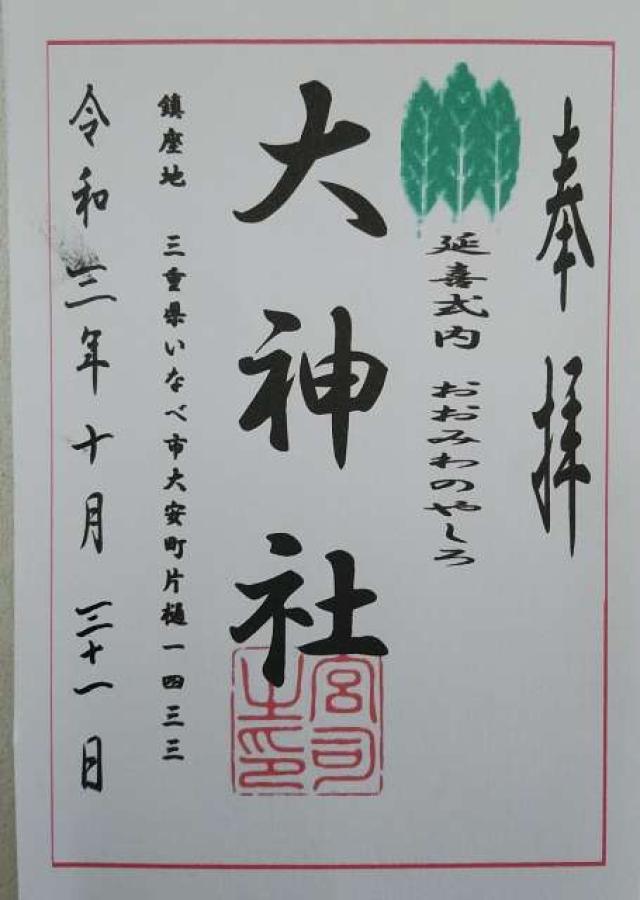 奉拝
延喜式内 おおみわのやしろ
大神社
宮司
之印
鎮座地 三重県いなべ市大安町片樋一四三三
令和三年十月三十一日